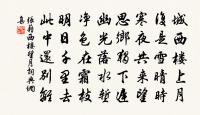 城西樓上月
復是雪晴時
寒夜共來望
思鄉獨下遲
幽光落水塹
净色在霜枝
明日千里去
此中還別離
張籍西樓望月詞典網
集